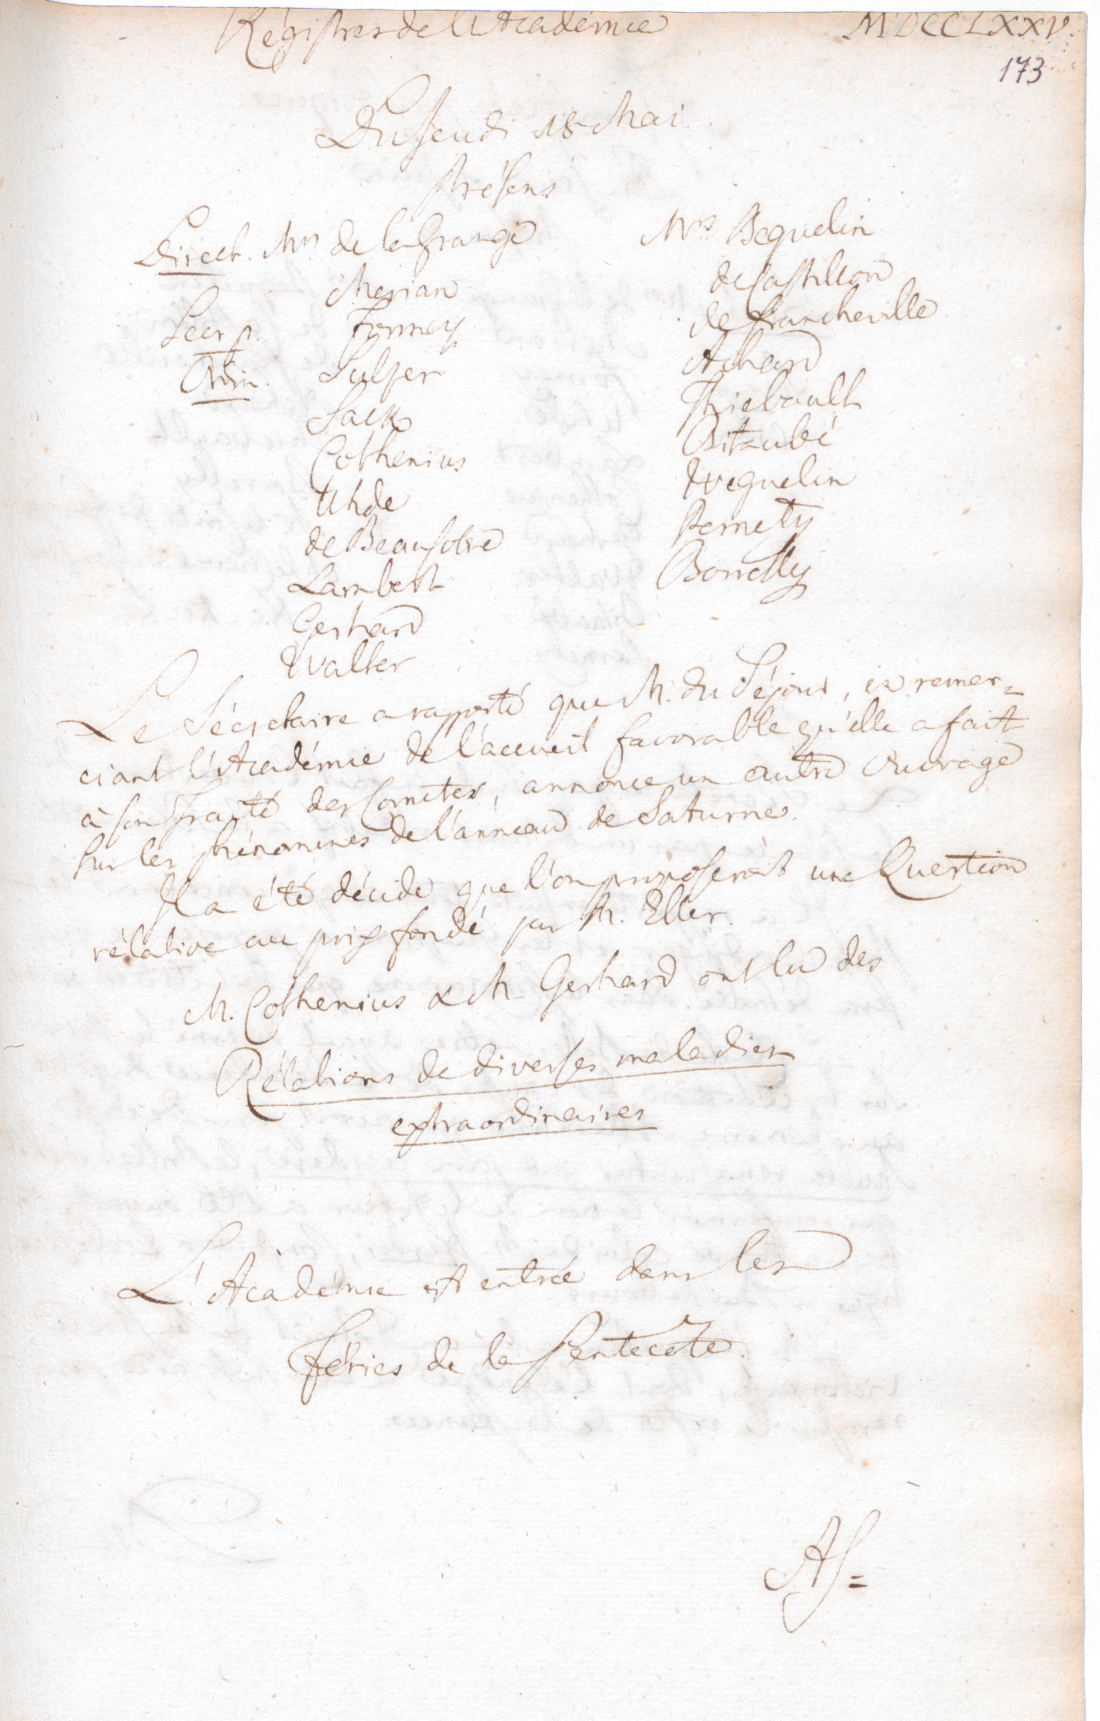 Régistres de l'Académie MDCCLXXV.
173
Du Jeudi 18 Mai.
Présens
Direct. Mrs de la Grange
Merian
Secr. p. Formey
Adm. Sulzer
Sack
Cothenius
Uhde
de Beausobre
Lambert
Gerhard
Walter
Mrs Beguelin
de Castillon
de Francheville
Achard
Thiebault
Bitaubé
Weguelin
Pernety
Borrelly
Le Sécretaire a raporté que M. du Séjour, en remer=
ciant l'Académie de l'accueil favorable qu'elle a fait
à son Traité des Comètes, annonce un autre Ouvrage
sur les phénomènes de l'anneau de Saturne.
Il a été décidé que l'on proposeroit une Question
rélative au prix fondé par M. Eller.
M. Cothenius & M. Gerhard ont lu des
Rélations de diverses maladies
extraordinaires
L'Académie est entrée dans les
Féries de la Pentecote.